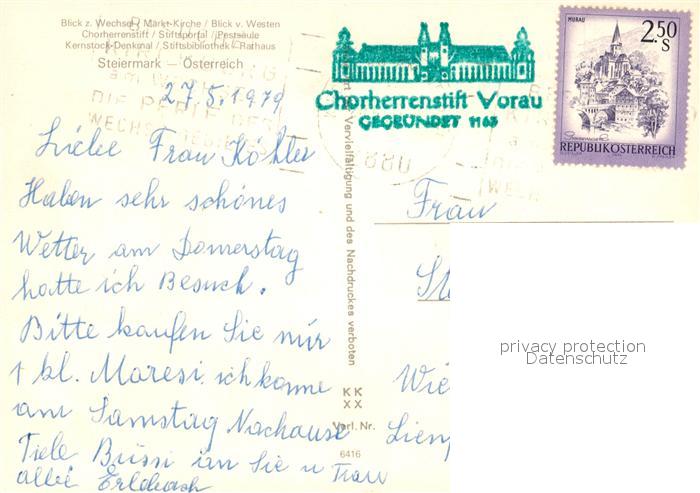 Blick z. Wechsel / Markt-Kirche / Blick v. Westen
Chorherrenstift / Stiftsportal / Pestsäule
Kernstock-Denkmal / Stiftsbibliothek / Rathaus
Steiermark — Österreich
27.5.1979
Liebe Frau Köhler
Haben sehr schönes
Wetter am Donnerstag
hatte ich Besuch.
Bitte kaufen Sie mir
1 kl. Maresi. ich komme
am Samstag Nachause
Viele Bussi an Sie u Frau
Vervielfältigung und des Nachdruckes verboten
KK
XX
Verl. Nr.
6416
Chorherrenstift Vorau
GEGRÜNDET 1163
MURAU
2.50
S
REPUBLIK ÖSTERREICH
Frau
Wie
privacy protection
Datenschutz